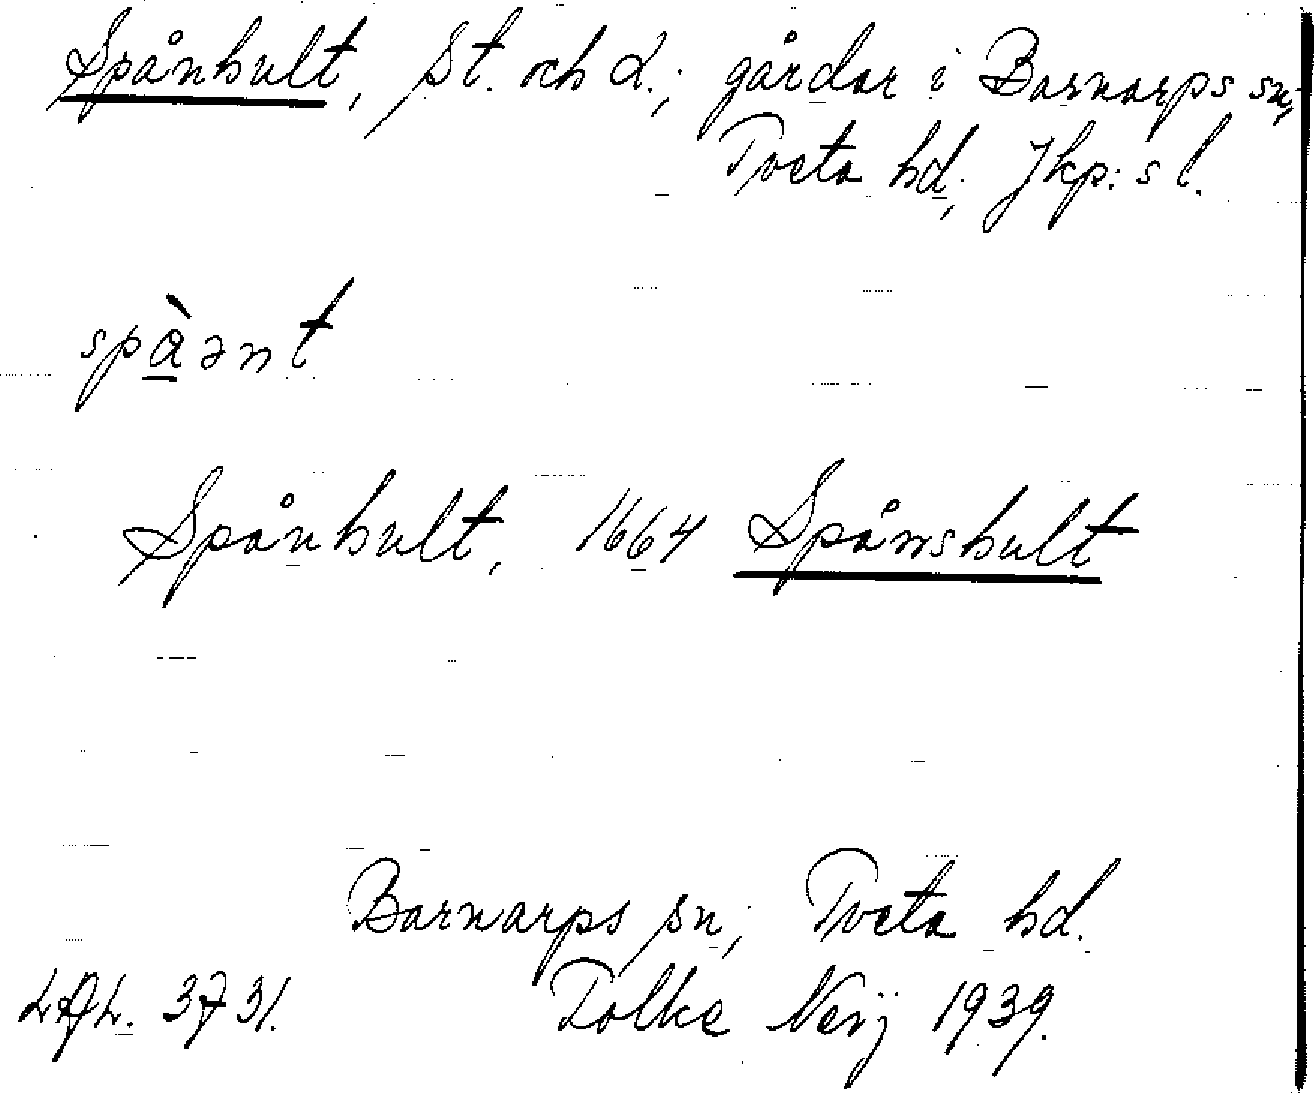 Spånhult, St. och L.; gårdar i Barnarps sn,
Tveta hd, Jkp:s l.
spàənt
Spånhult, 1664 Spånshult
Barnarps sn, Tveta hd.
3731. Folke Nerij 1939.